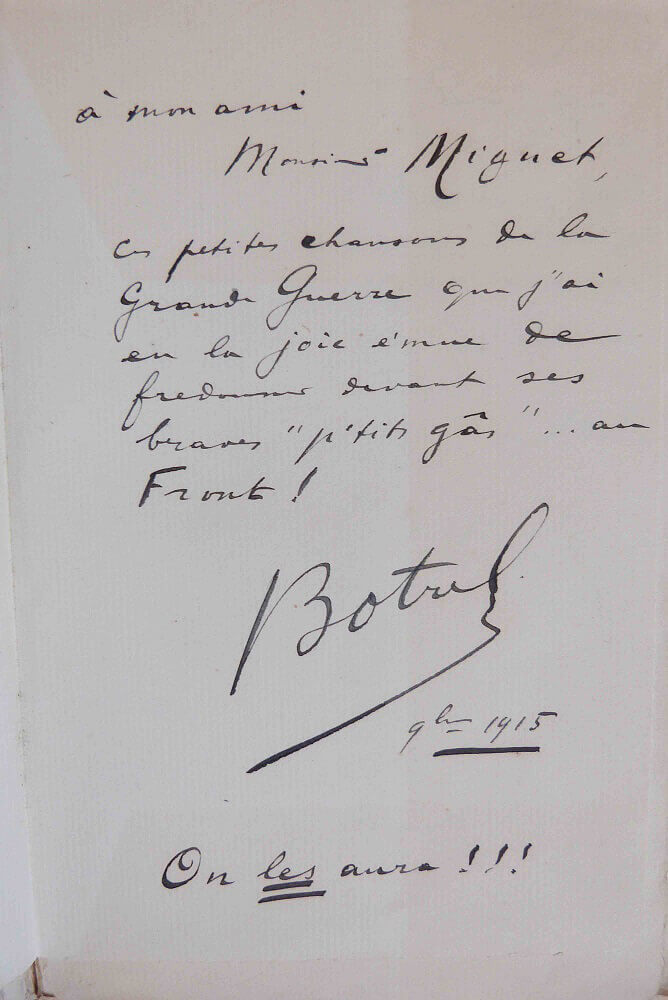 à mon ami
Monsieur Miguet,
Ces petites chansons de la
Grande Guerre que j'ai
eu la joie émue de
fredonner devant ses
braves "p'tits gâs"... au
Front !
Botrel
9bre 1915
On les aura !!!